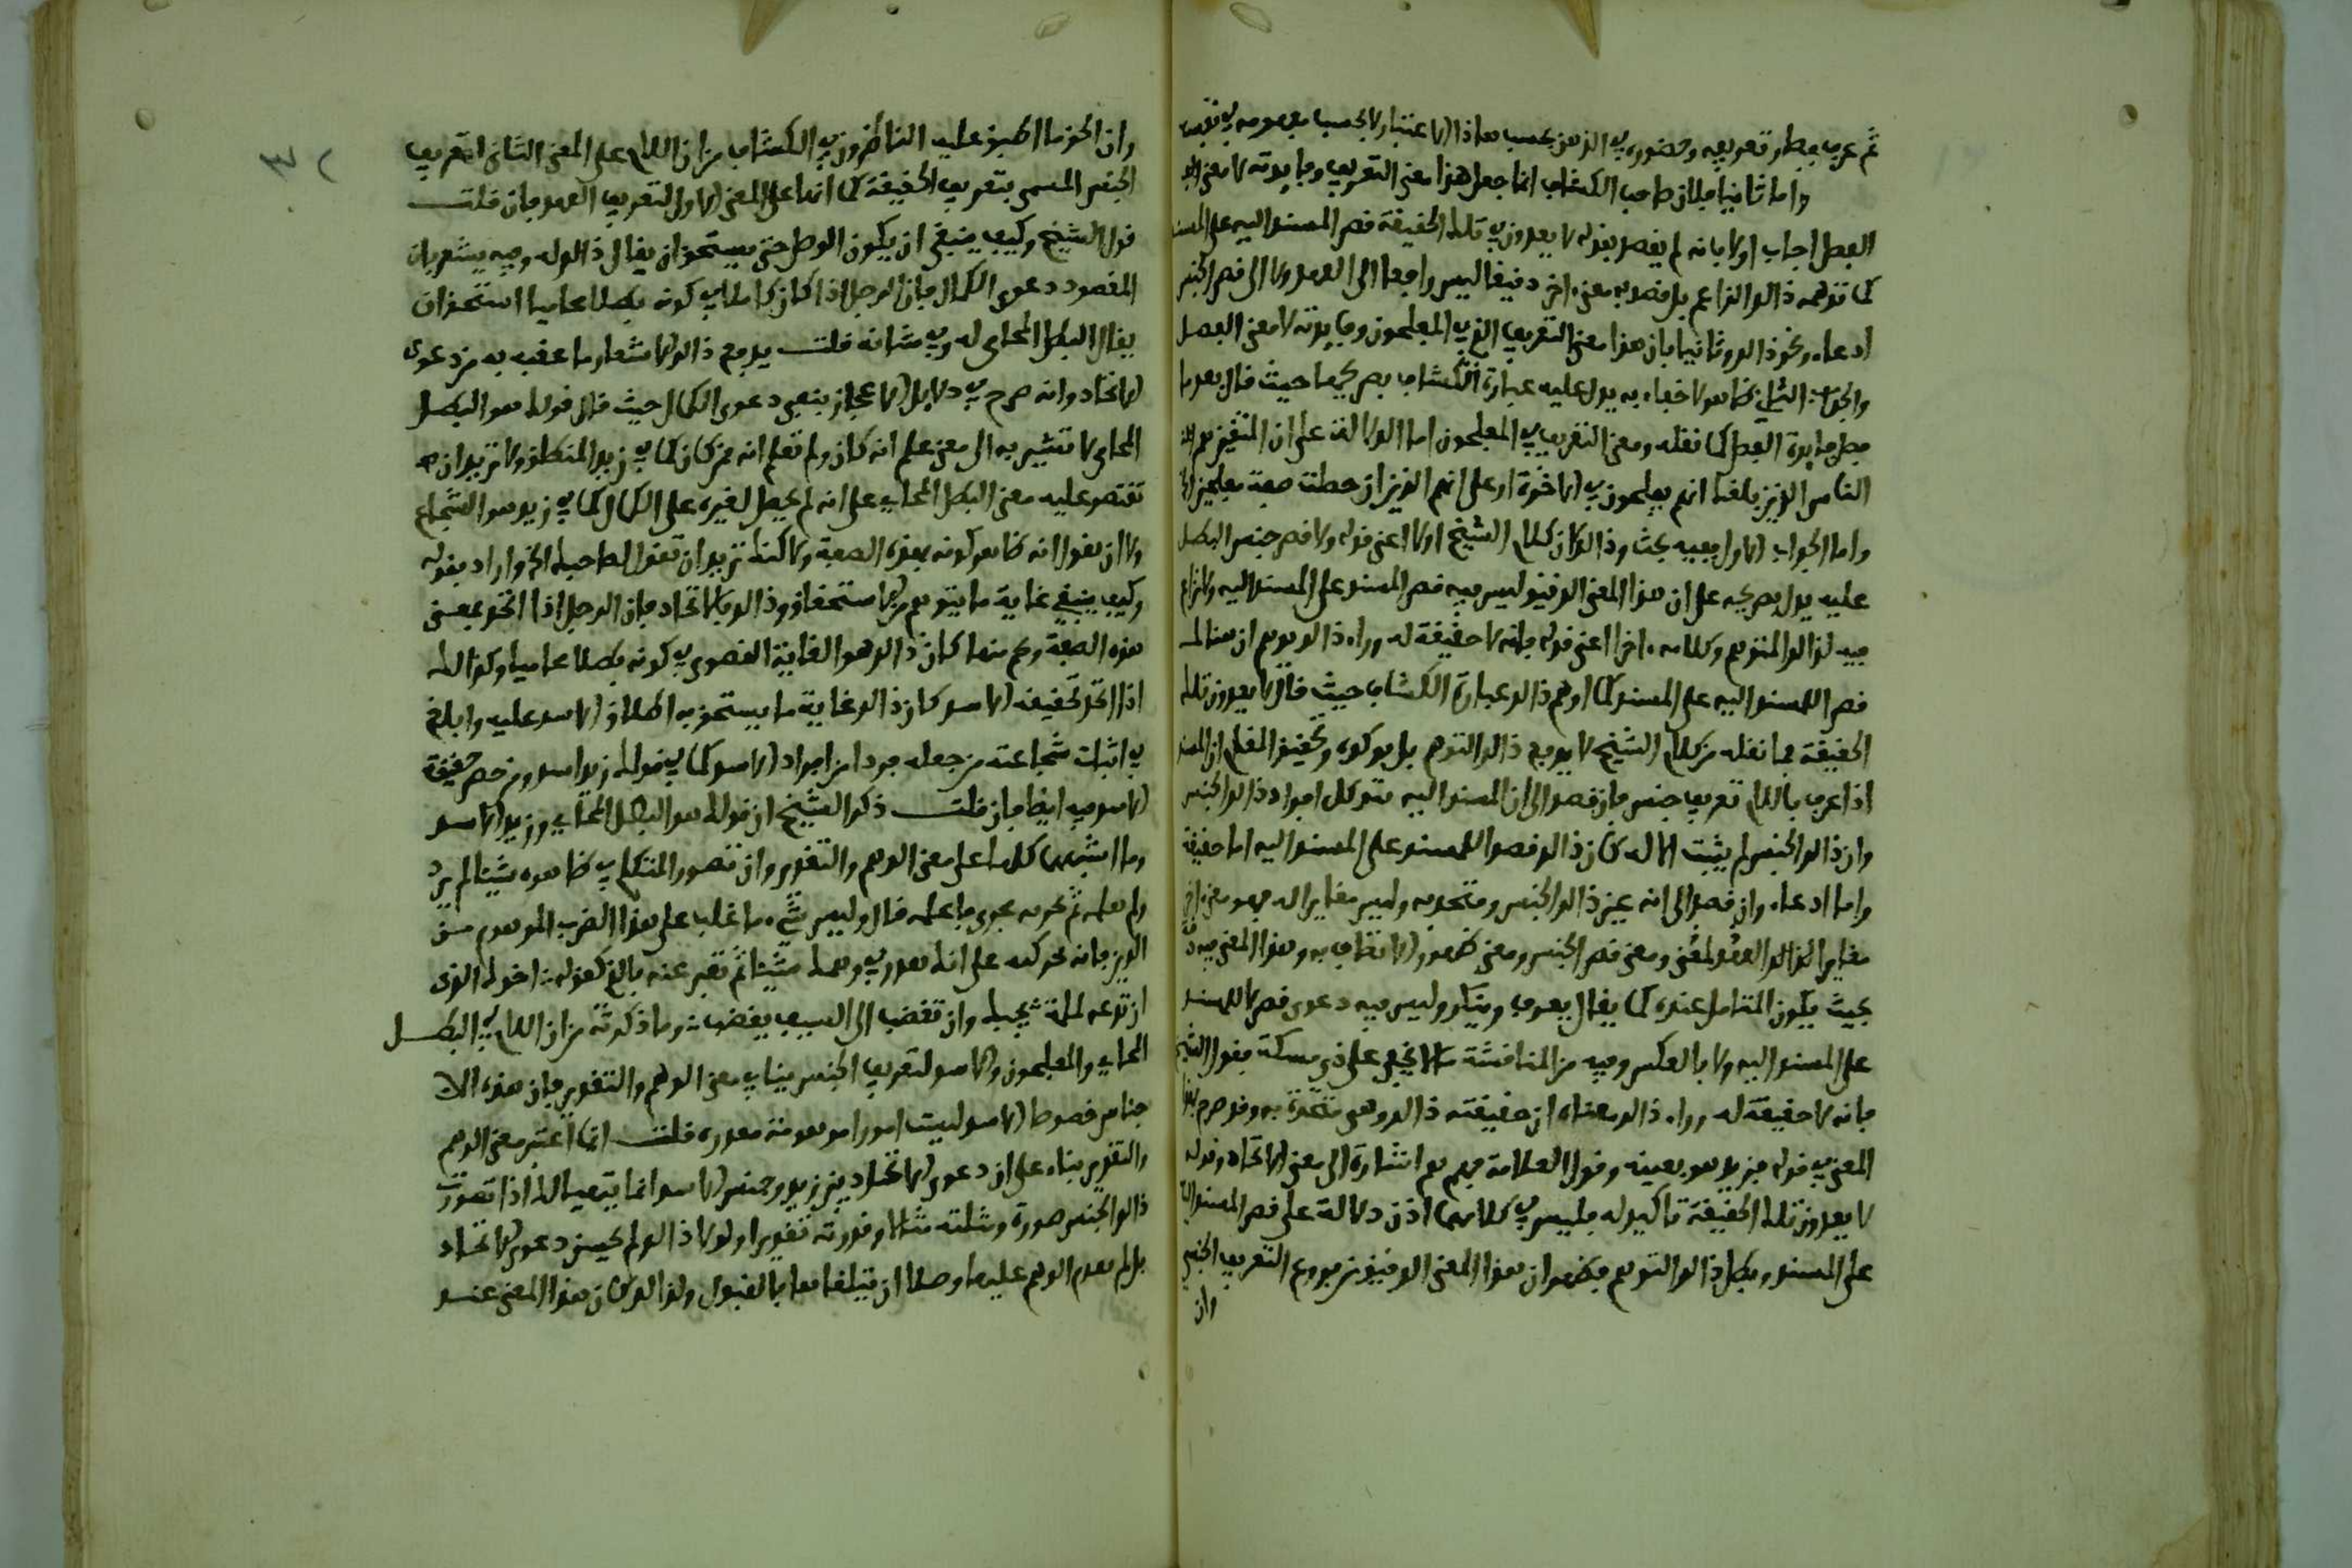 ثم عرف فصار تعريفه وحضوره في الذهن بحسب هذا الاعتبار لا بحسب مفهومه في نفسه
واما ثانيا فلان صاحب الكشاف انما جعل هذا معنى التعريف وفايدته لا معنى
الفصل اجاب اولا بانه لم يقصد بقوله لا يعدون تلك الحقيقة قصر المسند اليه على المسند
كما توهمه ذلك الزاعم بل قصد به معنى اخر دقيقا ليس راجعا الى العهد ولا الى قصر الجنس
ادعاء ونحو ذلك وثانيا بان هذا معنى التعريف الذي في المفلحون وفايدته لا معنى الفصل
والجواب الثاني ظاهر لا خفاء به يدل عليه عبارة الكشاف بصريحها حيث قال بعد ما
فصل فايدة الفصل كما نقله ومعنى التعريف في المفلحون اما الدلالة على ان المتقين هم
الناس الذين بلغك انهم يفلحون في الاخرة او على انهم الذين ان حصلت صفة مفلحين
واما الجواب الاول ففيه بحث وذلك لان كلام الشيخ اولا اعني قوله ولا قصر جنس البطل
عليه يدل بصريحه على ان هذا المعنى الدقيق ليس فيه قصر المسند على المسند اليه ولا نزاع
فيه لذلك المتوهم وكلامه اخرا اعني قوله فانه لا حقيقة له وراء ذلك يوهم ان هنالك
قصر المسند اليه على المسند كما اوهم ذلك عبارة الكشاف حيث قال لا يعدون تلك
الحقيقة فما نقله من كلام الشيخ لا يدفع ذلك التوهم بل يوكده وتحقيق المقام ان المسند
اذا عرف باللام تعريف جنس فان قصد الى ان المسند اليه هو كل افراد ذلك الجنس
وان ذلك الجنس لم يثبت الا له كان ذلك قصرا للمسند على المسند اليه اما حقيقة
واما ادعاء وان قصد الى انه عين ذلك الجنس ومتحد به وليس مغايرا له فهو معنى اخر
مغاير لذلك العهد لمعنى ومعنى قصر الجنس ومعنى ظهور الاتصاف به وهذا المعنى فيه دقة
بحيث يكون المتامل عنده كما يقال يعرف وينكر وليس فيه دعوى قصر لا للمسند
على المسند اليه ولا بالعكس وفيه من المناقشة ما لا يخفى على ذي مسكة فقول الشيخ
فانه لا حقيقة له وراء ذلك معناه ان حقيقته ذلك وهي متحدة به وقد صرح بهذا
المعنى في قوله فزيد هو بعينه وقول العلامة فهم هم اشارة الى معنى الاتحاد وقوله
لا يعدون تلك الحقيقة تاكيد له فليس في كلامهما اذن دلالة على قصر المسند اليه
على المسند وبطل ذلك التوهم فظهر ان هذا المعنى الدقيق من فروع التعريف الجنسي
وان
وان الحق ما اطبق عليه الناظرون في الكشاف من ان اللام على المعنى الثاني لتعريف
الجنس المسمى بتعريف الحقيقة كما انها على المعنى الاول لتعريف العهد فان قلت
قول الشيخ وكيف ينبغي ان يكون الرجل حتى يستحق ان يقال ذلك له وفيه يشعر بان
المقصود دعوى الكمال فان الرجل اذا كان كاملا في كونه بطلا محاميا استحق ان
يقال البطل المحامي له وفي شانه قلت يدفع ذلك الاشعار ما عقب به من دعوى
الاتحاد وانه صرح في دلايل الاعجاز بنفي دعوى الكمال حيث قال قولك هو البطل
المحامي لا تشير به الى معنى علم انه كان ولم تعلم انه ممن كان كما في زيد المنطلق ولا تريد ان
تقتصر عليه معنى البطل المحامي على انه لم يحصل لغيره على الكمال كما في زيد هو الشجاع
ولا ان تقول انه ظاهر كونه بهذه الصفة ولكنك تريد ان تقول لصاحبك الخ واراد بقوله
وكيف ينبغي غاية ما يتوهم من الاستحقاق وذلك بالاتحاد فان الرجل اذا اتحد بمعنى
هذه الصفة وفهم منها كان ذلك هو الغاية القصوى في كونه بطلا محاميا وكذلك
اذا اتحد بحقيقة الاسد كان ذلك غاية ما يستحق به اطلاق الاسد عليه وابلغ
في اثبات شجاعته من جعله فردا من افراد الاسد كما في قولك زيد اسد ومن حصر حقيقة
الاسد فيه ايضا فان قلت ذكر الشيخ ان قولك هو البطل المحامي وزيد الاسد
وما اشبههما كلها على معنى الوهم والتقدير وان تصور المتكلم في خاطره شيئا لم يره
ولم يعلمه ثم يجريه مجرى ما علمه قال وليس شيء ما غلب على هذا الضرب الموهوم من
الذين فانه يجري كثيرا على انك تقدر في وهمك شيئا ثم تعبر عنه بالذي كقوله اخوك الذي
ان تدعه لملمة يجبك وان تغضب الى السيف يغضب وما ذكرته من ان اللام في البطل
المحامي والمفلحون والاسد لتعريف الجنس ينافي معنى الوهم والتقدير فان هذه الا
جناس خصوصا الاسد ليست امورا موهومة مقدرة قلت انما اعتبر معنى الوهم
والتقدير بناء على ان دعوى الاتحاد بين زيد وجنس الاسد انما يتهيا لك اذا تصورت
ذلك الجنس صورة ومثلته مثالا وقدرته تقديرا ولولا ذلك لم يحسن دعوى الاتحاد
بل لم يقدم الوهم عليها وصلا ان يتلقاها بالقبول ولذلك كان هذا المعنى عند